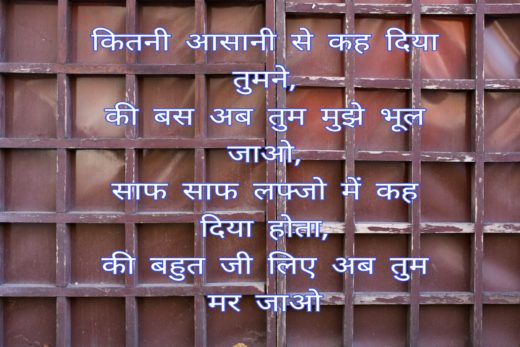 कितनी आसानी से कह दिया
तुमने,
की बस अब तुम मुझे भूल
जाओ,
साफ साफ लफ्जो में कह
दिया होता,
की बहुत जी लिए अब तुम
मर जाओ